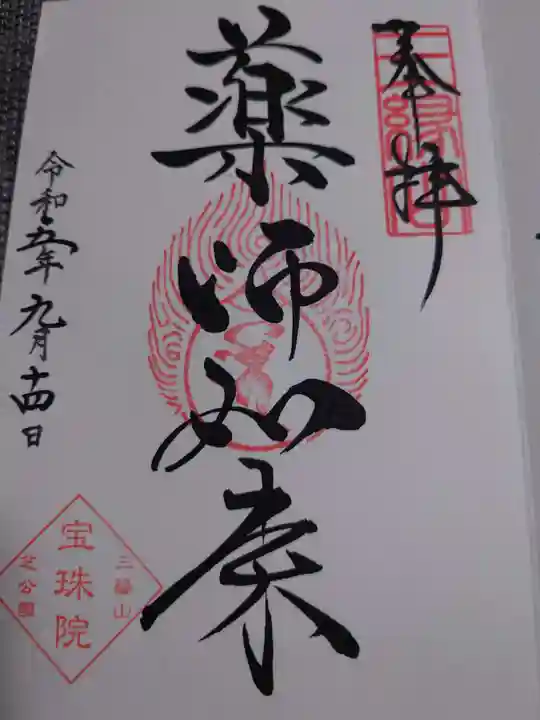 奉拝
薬師如来
令和五年九月十四日
三縁山
宝珠院
芝公園